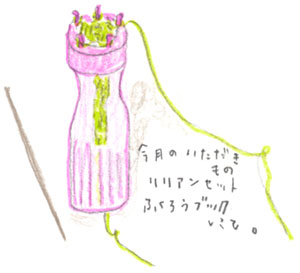 今月のいただき
もの
リリアンセット
ふくろうブック
にて。